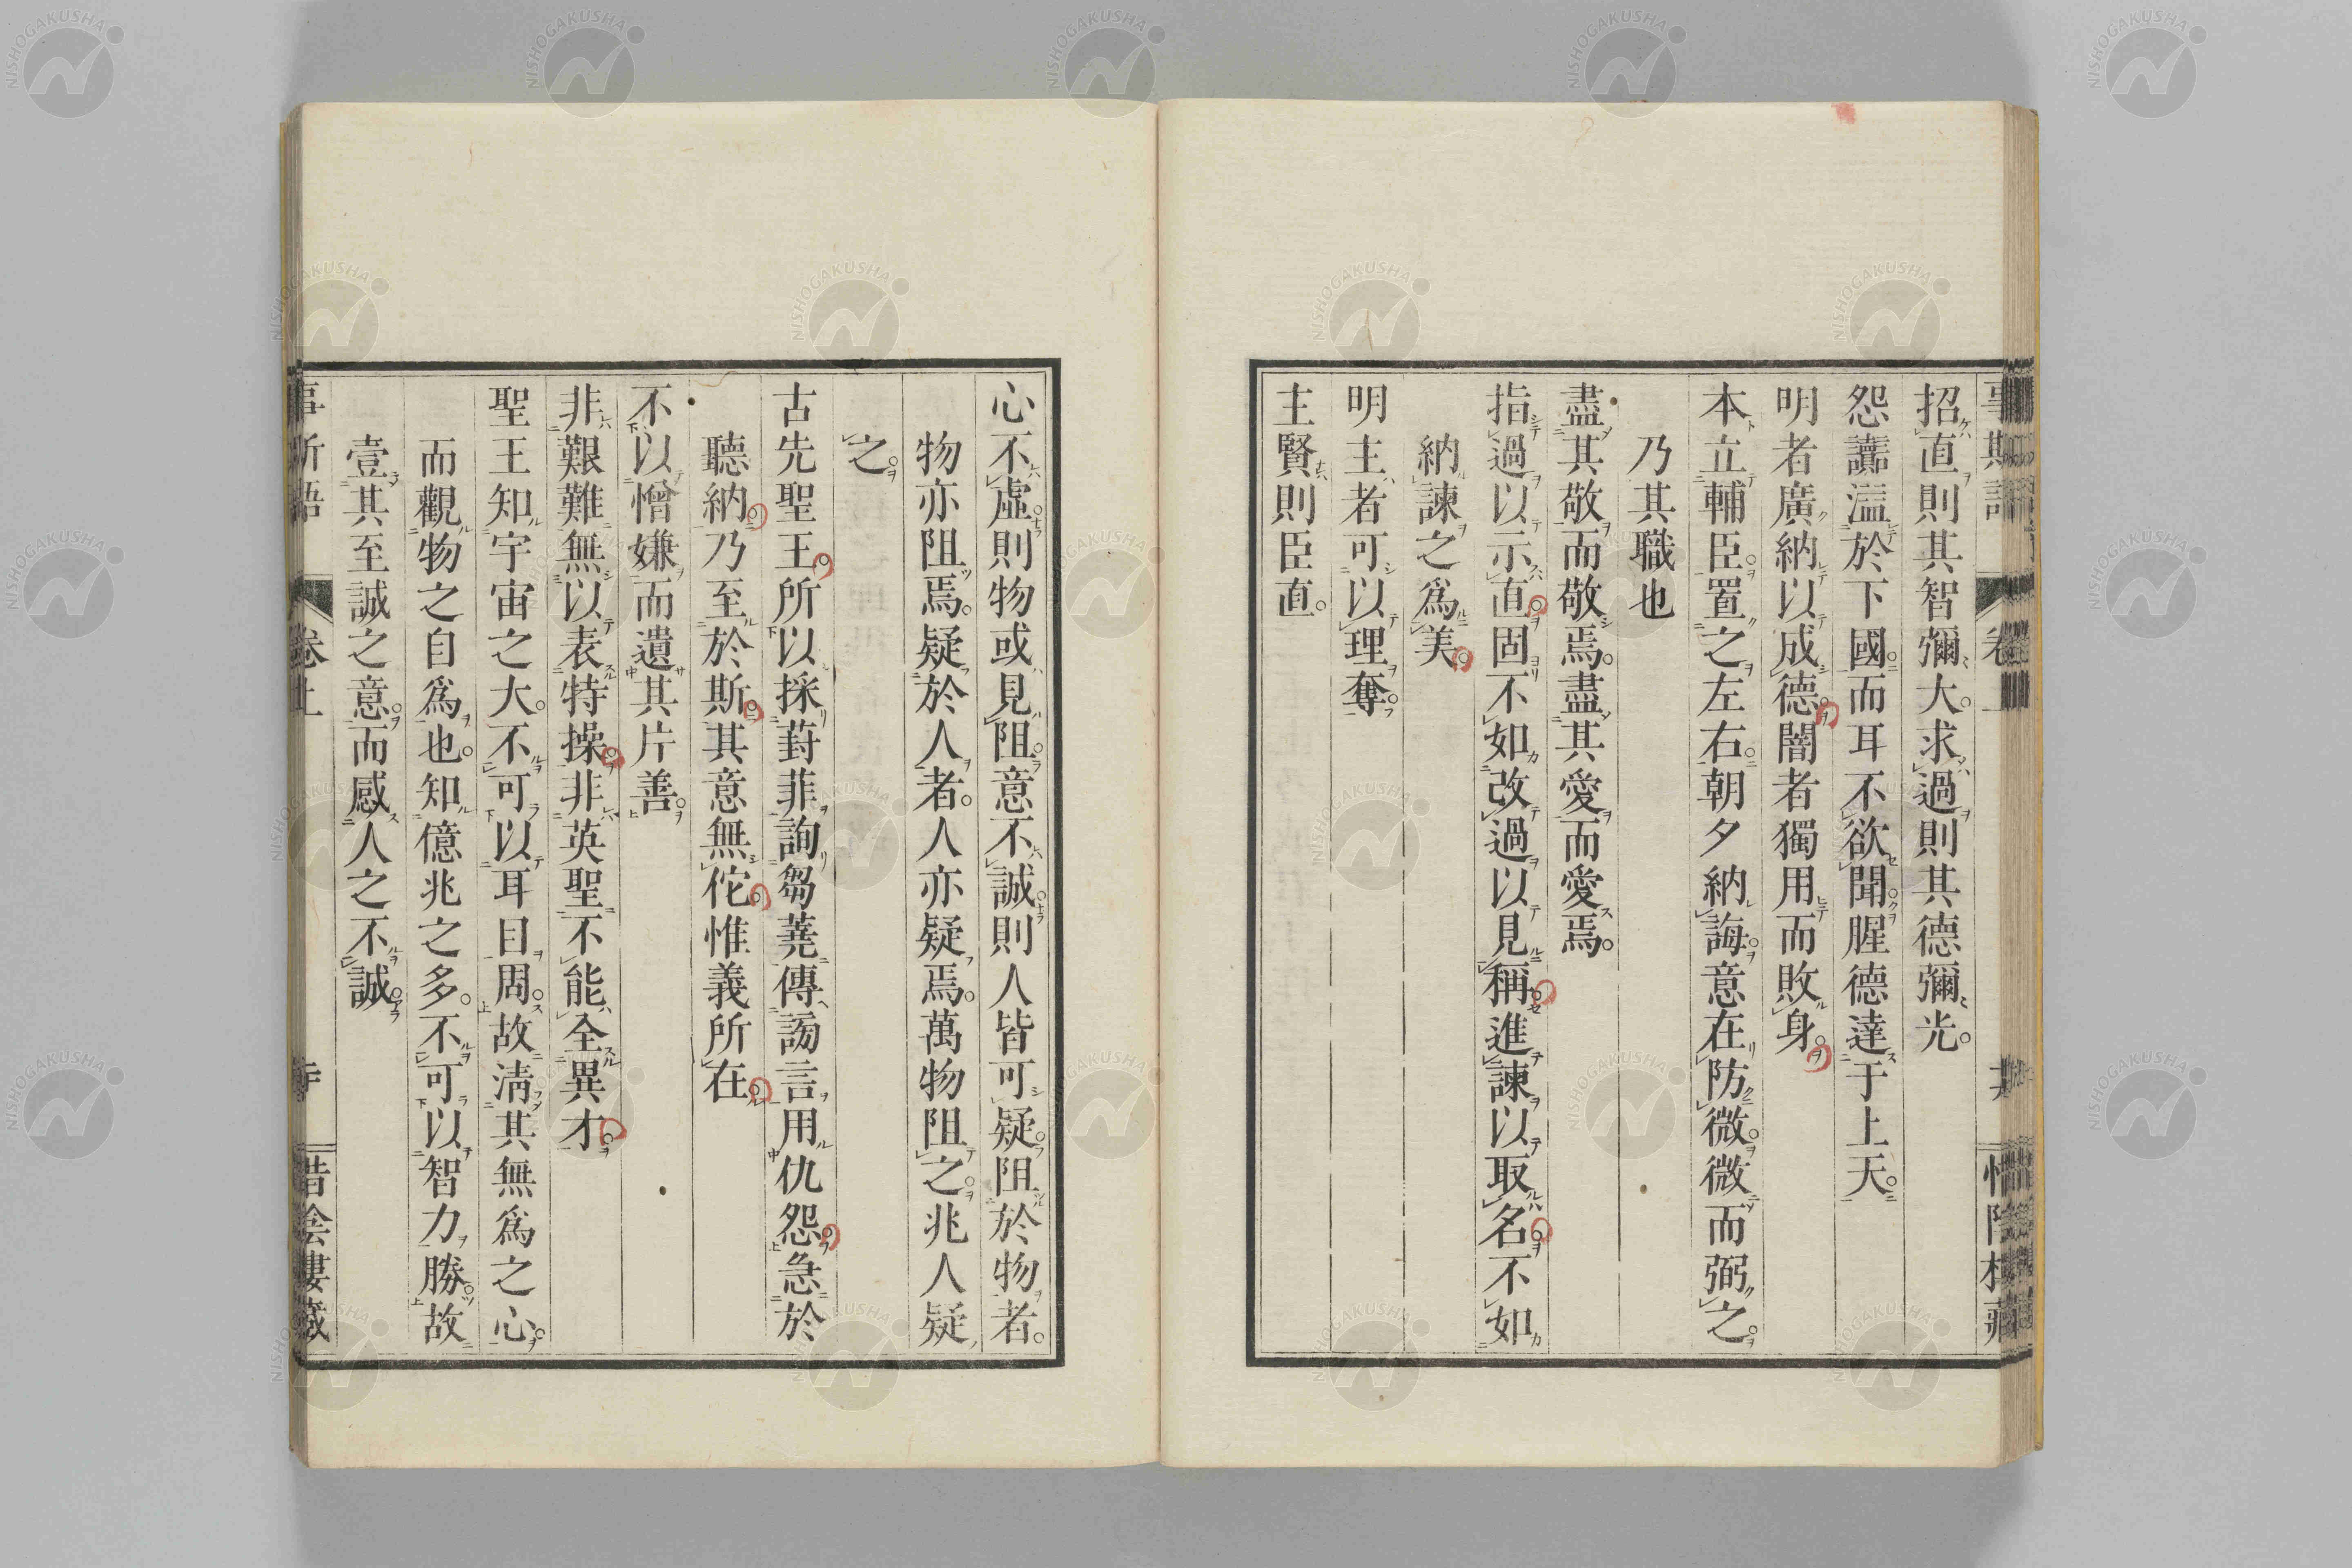 招直則其智彌大。求過則其德彌光。
怨讟溢於下國。而耳不欲聞。腥德達于上天。
明者廣納以成德。闇者獨用而敗身。
本立輔臣。置之左右。朝夕納誨。意在防微。微而弼之。
乃其職也
盡其敬而敬焉。盡其愛而愛焉。
指過以示直。固不如改過以見稱。進諫以取名。不如
納諫之爲美。
明主者可以理奪。
主賢則臣直。
心不虛。則物或見阻。意不誠。則人皆可疑。阻於物者。
物亦阻焉。疑於人者。人亦疑焉。萬物阻之。兆人疑
之。
古先聖王。所以採葑菲。詢芻蕘。傳謗言。用仇怨。急於
聽納。乃至於斯。其意無佗。惟義所在。
不以憎嫌而遺其片善。
非艱難無以表特操。非英聖不能全異才。
聖王知宇宙之大。不可以耳目周。故淸其無爲之心。
而觀物之自爲也。知億兆之多。不可以智力勝。故
壹其至誠之意。而感人之不誠。
卷上
NISHOGAKUSHA